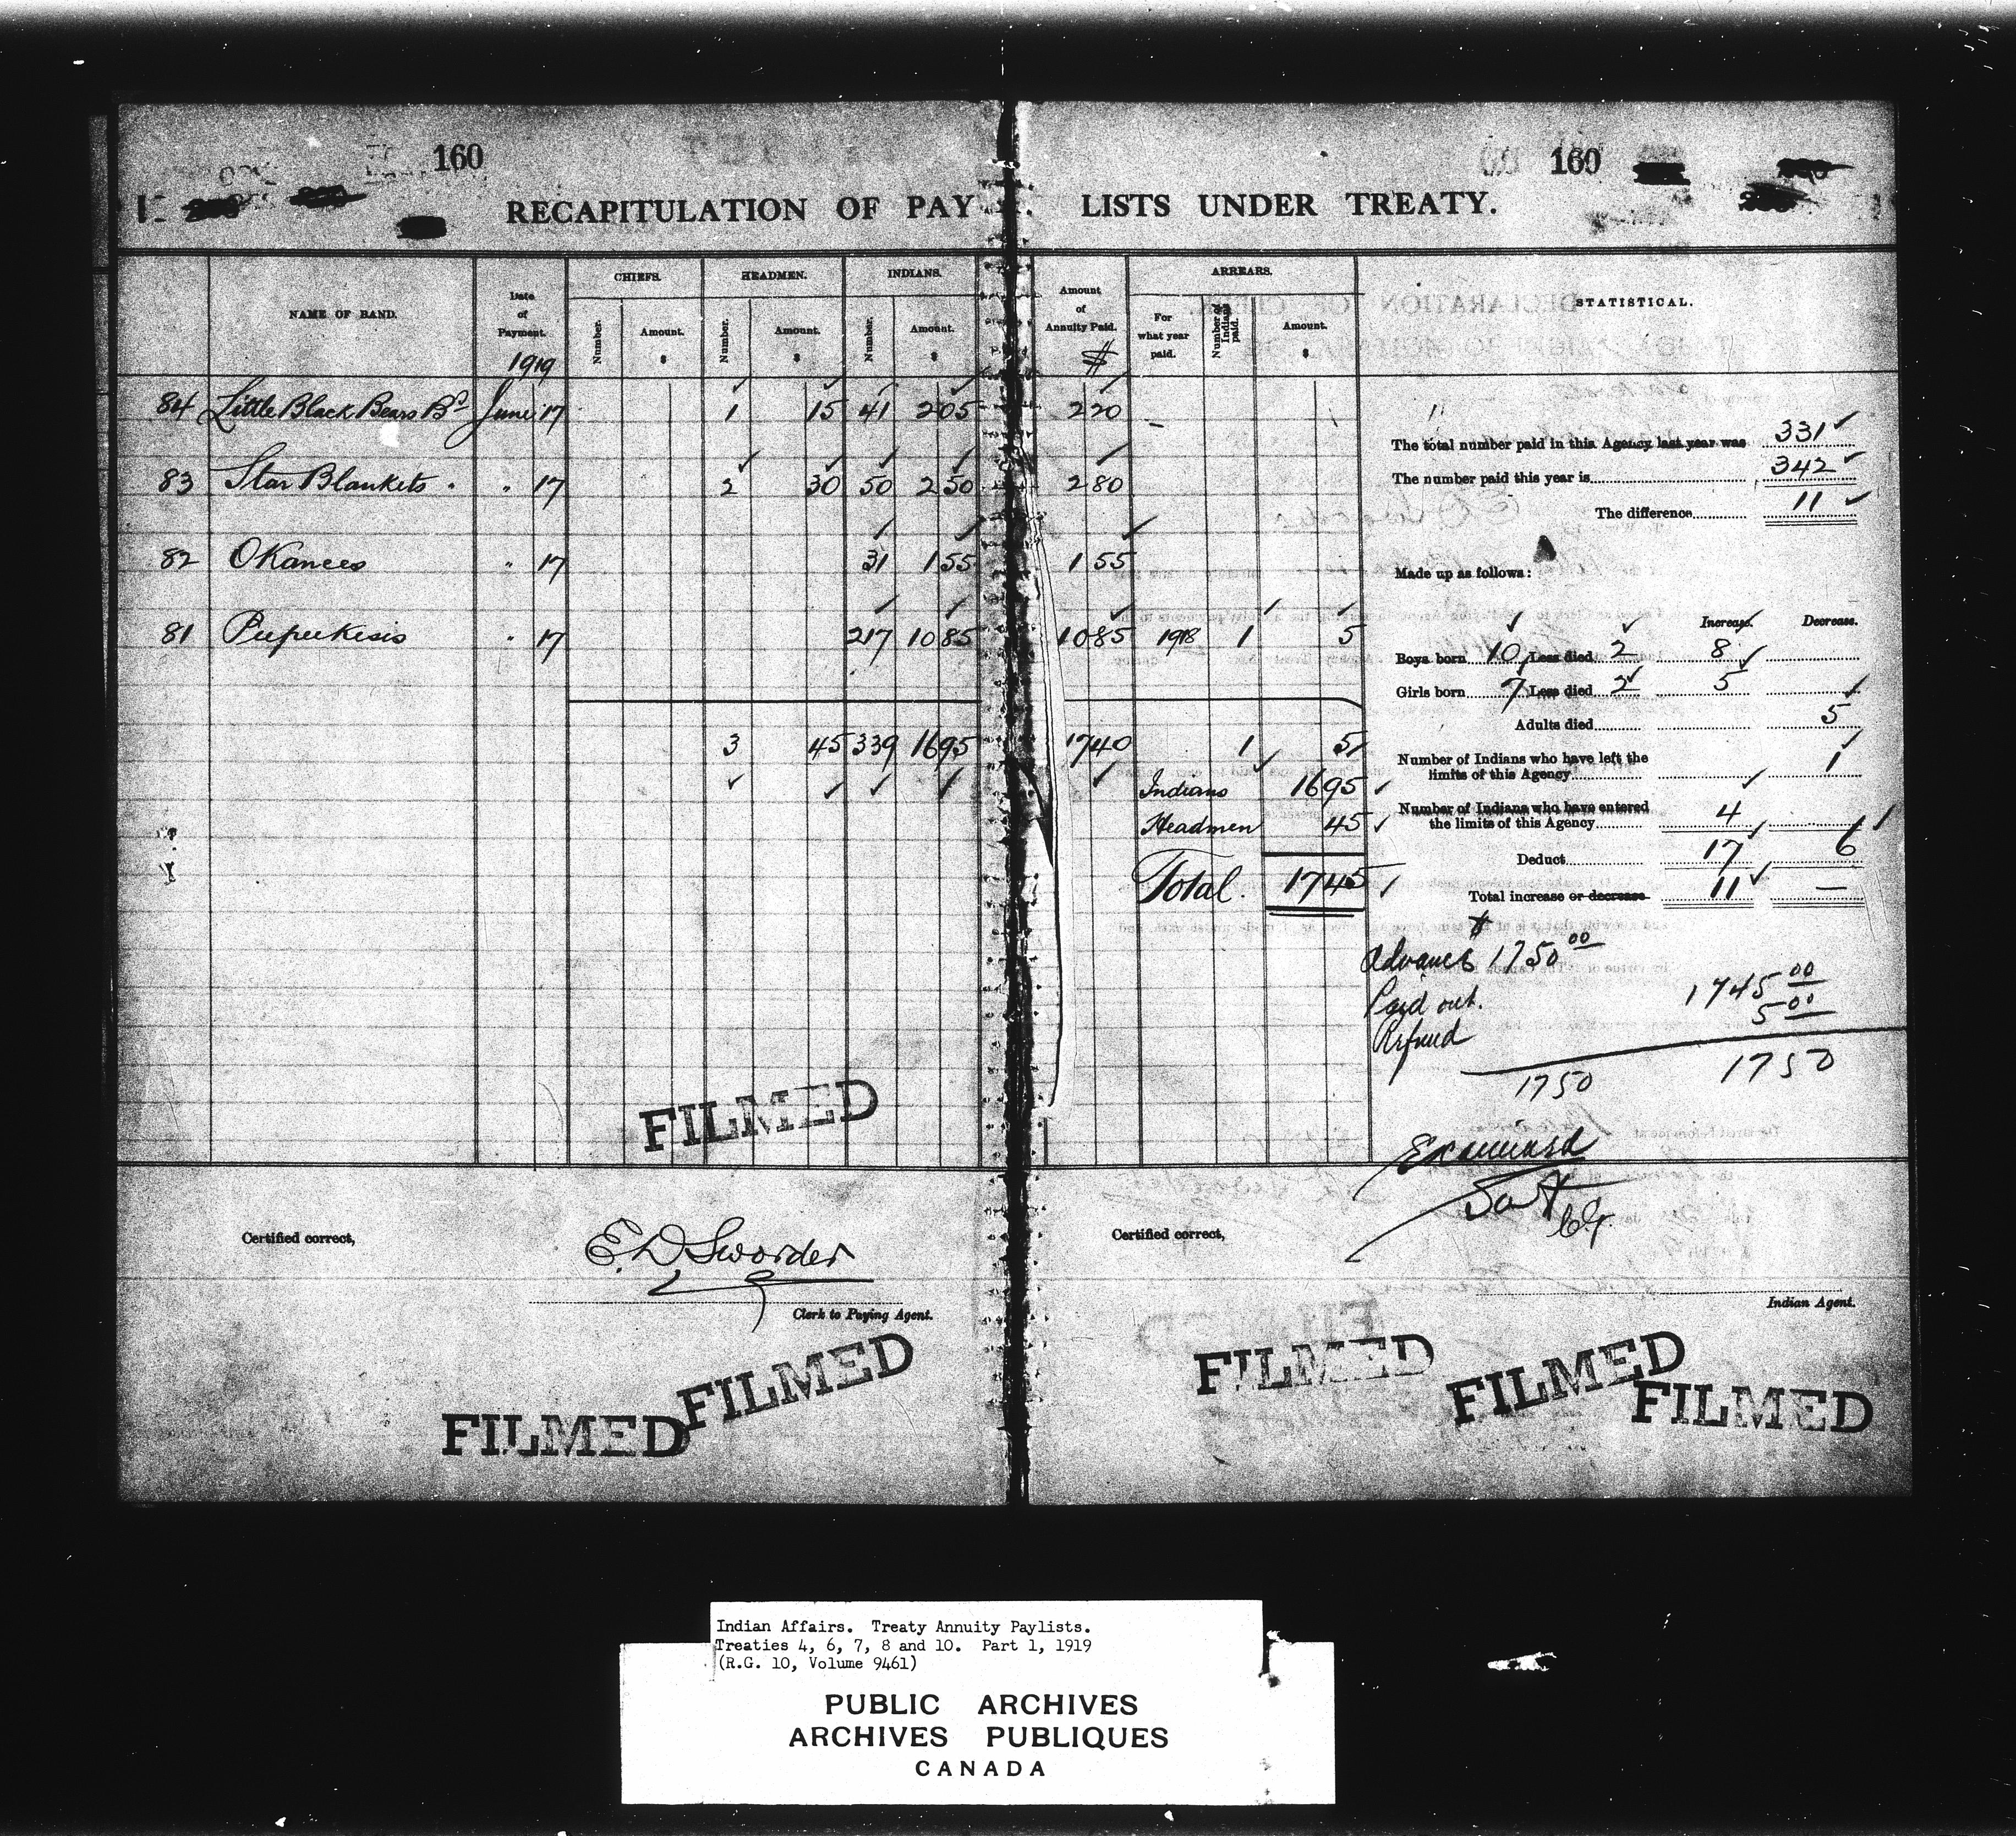 160 160
RECAPITULATION OF PAY LISTS UNDER TREATY.
NAME OF BAND.
Date of Payment.
1919
CHIEFS.
Number.
Amount.
$
HEADMEN.
Number.
Amount.
$
INDIANS.
Number.
Amount.
$
Amount of Annuity Paid.
$
ARREARS.
For what year paid.
Number of Indians paid.
Amount.
$
STATISTICAL.
84 Little Black Bears Bd June 17 1 15 41 205 220
83 Star Blankets " 17 2 30 50 250 280
82 OKanees " 17 31 155 155
81 Peepeekesis " 17 217 1085 1085 1918 1 5
3 45 339 1695 1740 1 5
Indians 1695
Headmen 45
Total. 1745
The total number paid in this Agency last year was 331
The number paid this year is 342
The difference 11
Made up as follows:
Increase. Decrease.
Boys born 10 Less died 2 8
Girls born 7 Less died 2 5
Adults died 5
Number of Indians who have left the
limits of this Agency 1
Number of Indians who have entered
the limits of this Agency 4
Deduct 17 6
Total increase or decrease 11 —
$
Advance 1750 00
Paid out. 1745 00
Refund 5 00
1750 1750
FILMED
Examined
Certified correct,
E. D. Sworder
Clerk to Paying Agent.
Certified correct,
Indian Agent.
FILMED
FILMED
FILMED
FILMED
FILMED
Indian Affairs. Treaty Annuity Paylists.
Treaties 4, 6, 7, 8 and 10. Part 1, 1919
(R.G. 10, Volume 9461)
PUBLIC ARCHIVES
ARCHIVES PUBLIQUES
CANADA